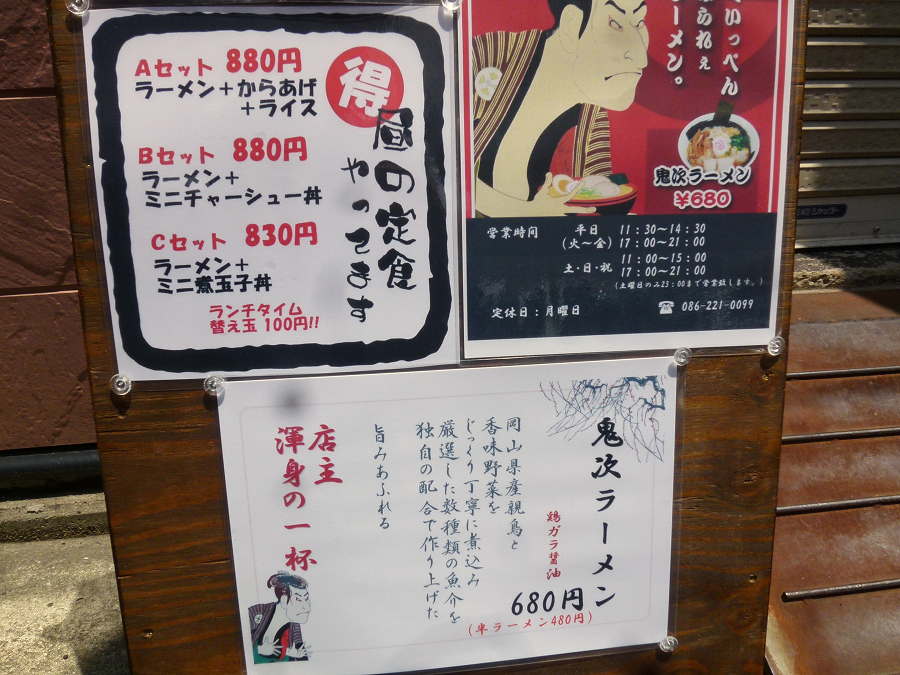 Aセット 880円
ラーメン＋からあげ
＋ライス
Bセット 880円
ラーメン＋
ミニチャーシュー丼
Cセット 830円
ラーメン＋
ミニ煮玉子丼
ランチタイム
替え玉 100円!!
得
昼の定食
やってます
いっぺん
られぇ
ラーメン。
鬼次ラーメン
¥680
営業時間 平日 11:30〜14:30
(火〜金) 17:00〜21:00
土・日・祝 11:00〜15:00
17:00〜21:00
(土曜日のみ23:00まで営業致します。)
定休日：月曜日 ☎ 086-221-0099
鬼次ラーメン
鶏ガラ醤油
680円
(半ラーメン480円)
岡山県産親鳥と
香味野菜を
じっくり丁寧に煮込み
厳選した数種類の魚介を
独自の配合で作り上げた
旨みあふれる
店主
渾身の一杯